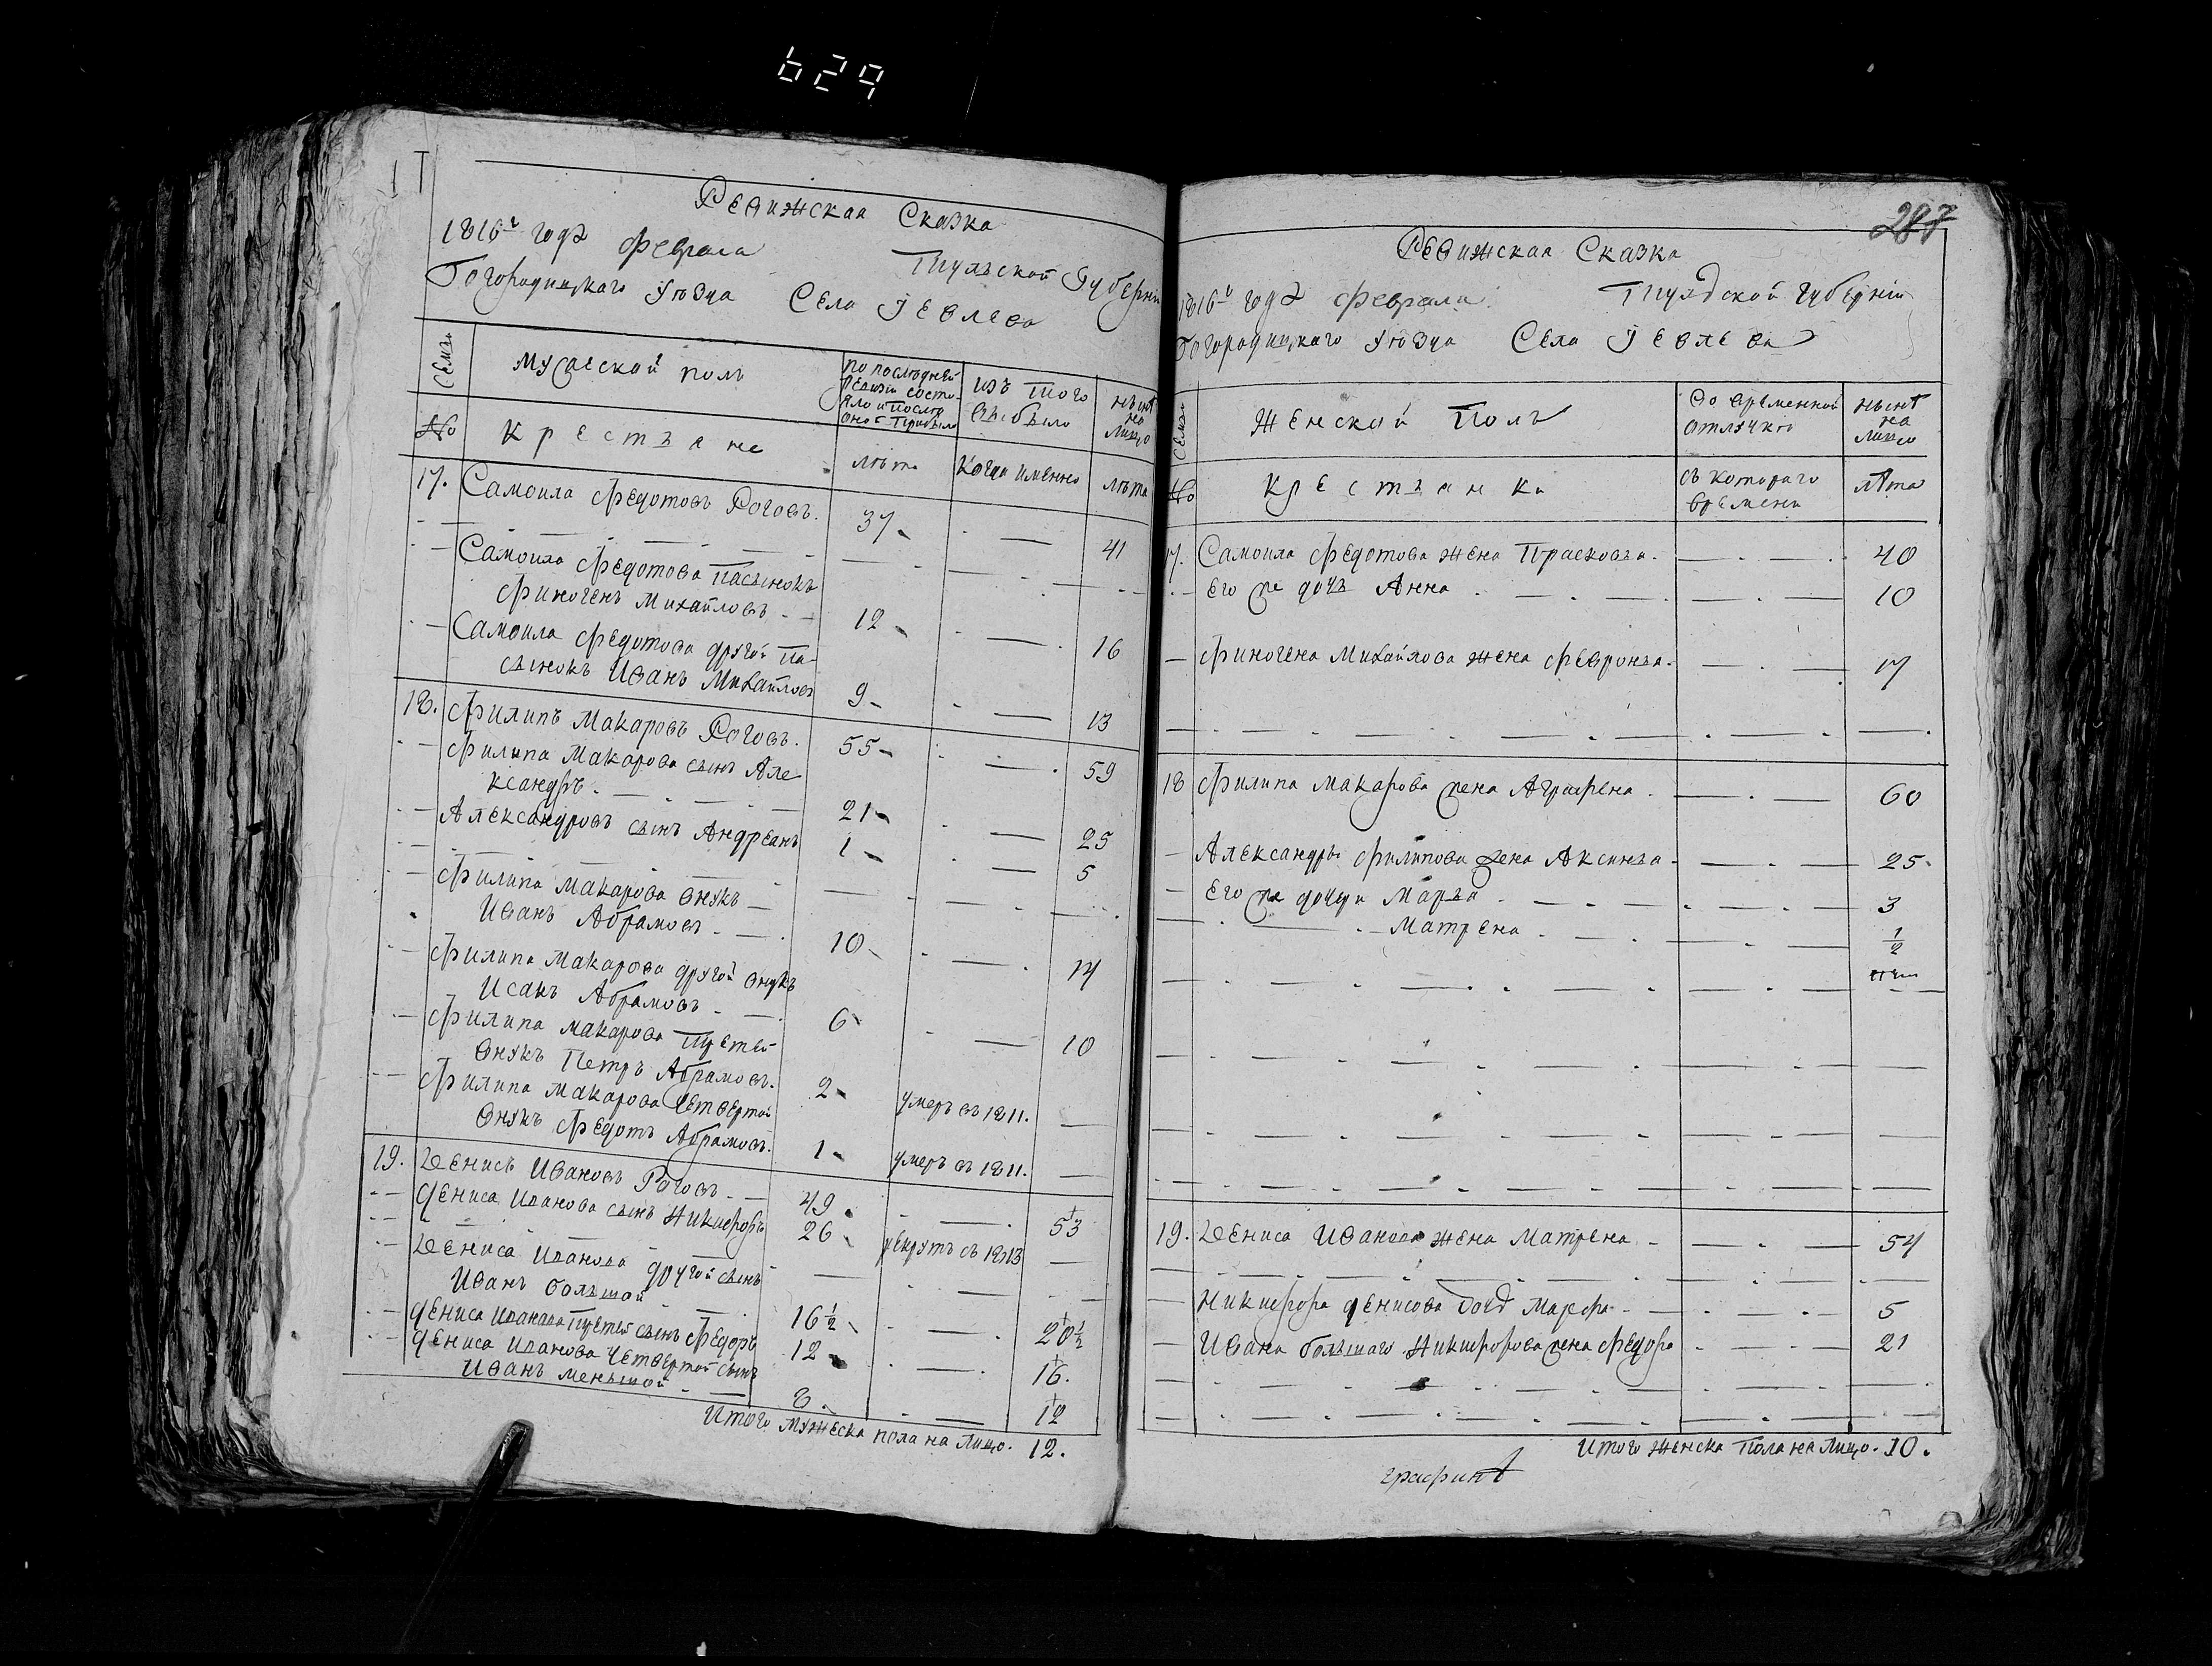 629
Ревижская Сказка
1816го годa Февраля Тульской Губерніи
Богородицкаго Уѣзда Села Іевлева
Семьи
Мужеской полъ
по последней ревизіи состояло и после оной прибыло
изъ того выбыло
нынѣ на лицо
№
крестьяне
лѣта
Когда именно
лѣта
17. Самоила Федотовъ Роговъ. 37 41
Самоила Федотова пасынокъ
Финогенъ Михайловъ 12 16
Самоила Федотова другой па-
сынокъ Иванъ Михайловъ 9 13
18. Филипъ Макаровъ Роговъ. 55 59
Филипа Макарова сынъ Але
ксандръ 21 25
Александровъ сынъ Андреянъ 1 5
Филипа Макарова внукъ
Иванъ Абрамовъ 10 14
Филипа Макарова другой внукъ
Исакъ Абрамовъ 6 10
Филипа Макарова третей
внукъ Петръ Абрамовъ. 2 умеръ въ 1811.
Филипа Макарова четвертой
внукъ Федотъ Абрамовъ. 1 умеръ въ 1811.
19. Денисъ Ивановъ Роговъ 49 53
Дениса Иванова сынъ Никифоръ 26 рекрутъ съ 1813
Дениса Иванова другой сынъ
Иванъ большой 16 1/2 20 1/2
Дениса Иванова третей сынъ Федоръ 12 16.
Дениса Иванова четвертой сынъ
Иванъ меньшой 8. 12
Итого мужеска пола на лицо. 12.
287
Ревижская Сказка
1816го годa Февраля Тульской Губерніи
Богородицкаго Уѣзда Села Іевлева
Семьи
Женской Полъ
во временной отлучке
нынѣ на лицо
№
крестьянки
съ котораго времени
лѣта
17. Самоила Федотова жена Прасковья 40
Его же дочь Анна 10
Финогена Михайлова жена Февронья 17
18 Филипа Макарова жена Аграфена 60
Александръ Филипова жена Аксинья 25
Его же дочери Марья 3
Матрена 1/2
19. Дениса Иванова жена Матрена 54
Никифора Денисова дочь Марфа 5
Ивана большаго Никифорова жена Федора 21
Итого женска пола на лицо. 10.
графинѣ